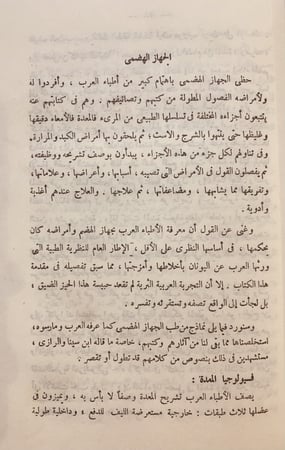 الجهاز الهضمى
حظى الجهاز الهضمى باهتمام كبير من أطباء العرب ، وأفردوا له
ولأمراضه الفصول المطولة من كتبهم وتصانيفهم . وهم فى كتابتهم عنه
يتتبعون أجزاءه المختلفة فى تسلسلها الطبيعى من المرىء فالمعدة فالأمعاء دقيقها
وغليظها حتى ينتهوا بالشرج والاست؛ ثم يلحقون بها أمراض الكبد والمرارة.
وفى تناولهم لكل جزء من هذه الأجزاء ، يبدأون بوصف تشريحه ووظيفته ،
ثم يفصلون القول فى الأمراض التى تصيبه ، أسبابها ، وأعراضها ، وعلاماتها ،
وتفريقها مما يشابهها ، ومضاعفاتها ، ثم علاجها . والعلاج عندهم أغذية
وأدوية .
وغنى عن القول أن معرفة الأطباء العرب بجهاز الهضم وأمراضه كان
يحكمها ، فى أساسها النظرى على الأقل ، الإطار العام للنظرية الطبية التى
ورثها العرب عن اليونان بأخلاطها وأمزجتها ، مما سبق تفصيله فى مقدمة
هذا الكتاب . إلا أن التجربة العربية الثرية لم تقعد حبيسة هذا الحيز الضيق ،
بل لجأت إلى الواقع تصفه وتستقرئه وتفسره .
وسنورد فيما يلى نماذج من طب الجهاز الهضمى كما عرفه العرب ومارسوه ،
استخلصناها مما بقى لنا من آثارهم وكتبهم ، خاصة ما قاله ابن سينا والرازى ،
مستشهدين فى ذلك بنصوص من كلامهم قد تطول أو تقصر .
فسيولوجيا المعدة :
يصف الأطباء العرب تشريح المعدة وصفاً لا بأس به ، ويميزون فى
عضلها ثلاث طبقات : خارجية مستعرضة الليف للدفع ، وداخلية طولية